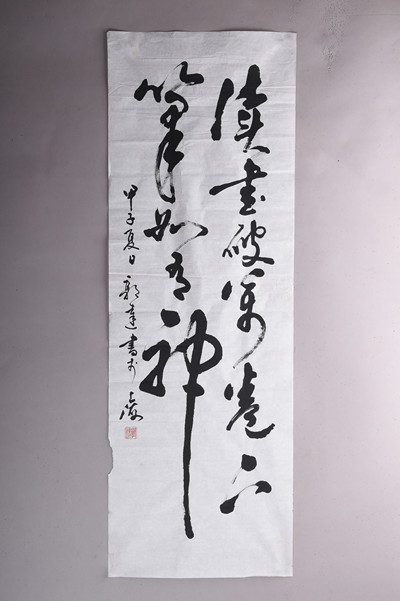 读书破万卷下
笔如有神
甲子夏日郭达书于